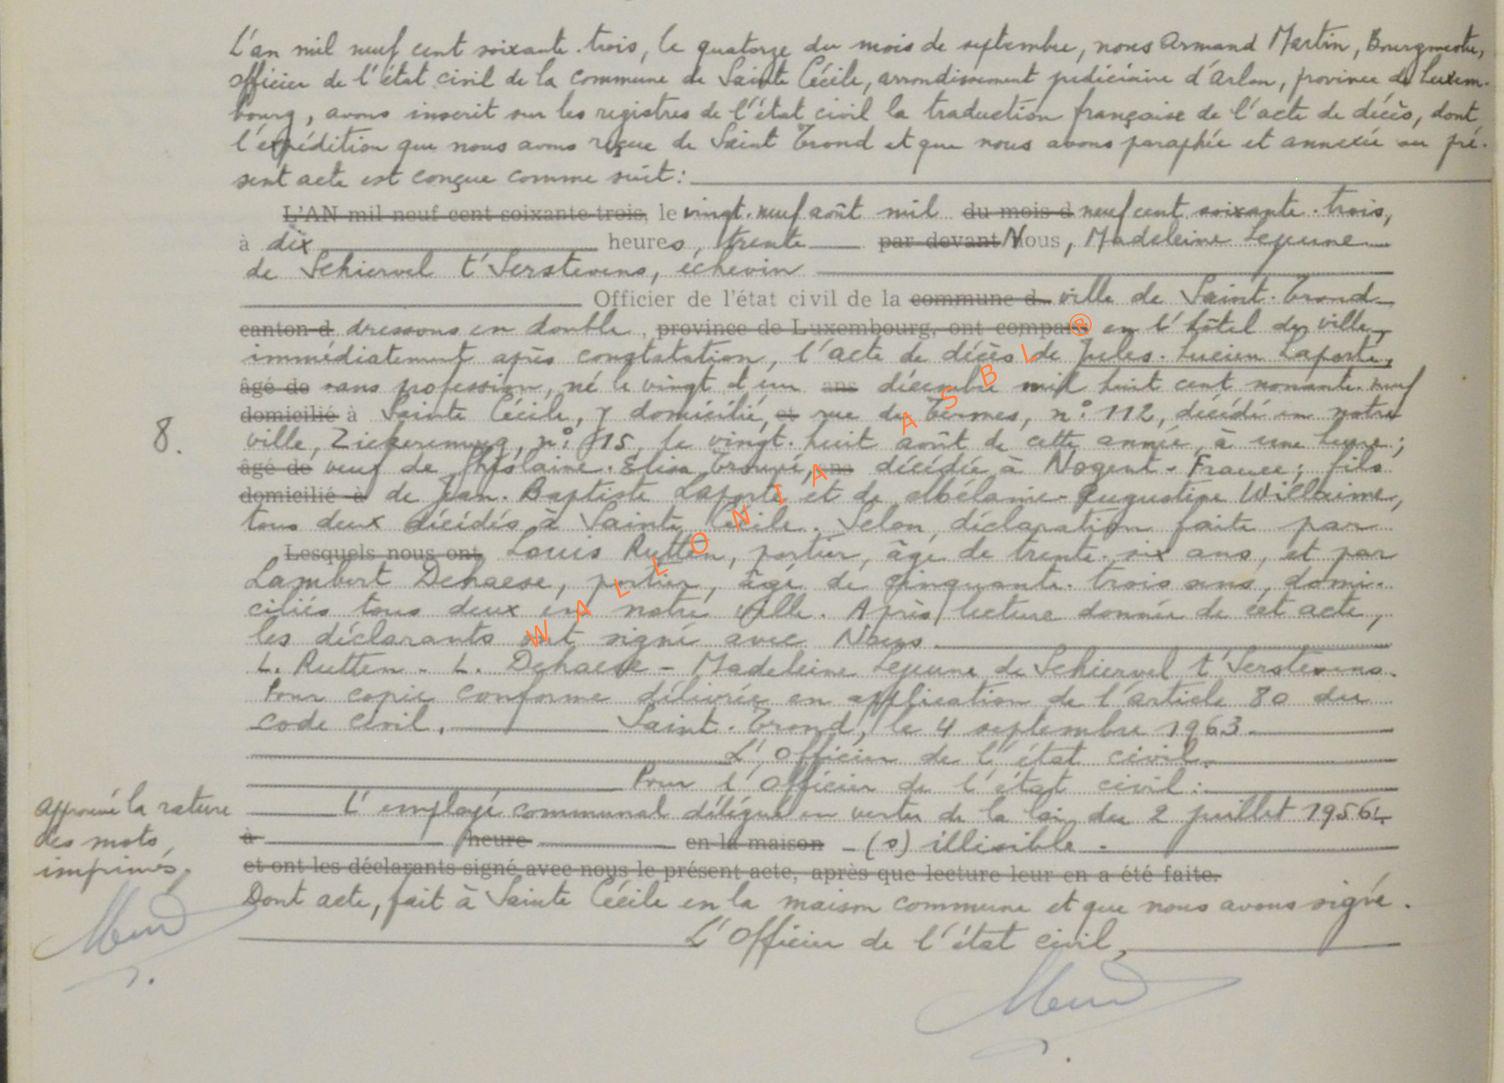 L'an mil neuf cent soixante-trois, le quatorze du mois de septembre, nous Armand Martin, Bourgmestre,
officier de l'état civil de la commune de Sainte Cécile, arrondissement judiciaire d'Arlon, province de Luxem-
bourg, avons inscrit sur les registres de l'état civil la traduction française de l'acte de décès, dont
l'expédition que nous avons reçue de Saint Trond et que nous avons paraphée et annexée au pré-
sent acte est conçue comme suit :
L'AN mil neuf cent soixante-trois, le vingt-neuf août mil du mois d neuf cent soixante-trois,
à dix heures, trente par devant Nous, Madeleine Lejeune
de Schiervel t'Serstevens, échevin
Officier de l'état civil de la commune d ville de Saint-Trond
canton d dressons en double, province de Luxembourg, ont comparu en l'hôtel de ville,
immédiatement après constatation, l'acte de décès de Jules-Lucien Laporte,
âgé de sans profession, né le vingt et un ans décembre mil huit cent nonante-neuf
domicilié à Sainte Cécile, y domicilié, et rue de n° 112, décédé en notre
ville, n° 115, le vingt-huit août de cette année, à une heure ;
âgé de veuf de Ghislaine-Elisa ans décédée à Nogent-France ; fils
domicilié à de Jean-Baptiste Laporte et de Augustine
tous deux décédés à Sainte Cécile. Selon déclaration faite par
Lesquels nous ont Louis Rutten, portier, âgé de trente-six ans, et par
Lambert Dehaese, portier, âgé de cinquante-trois ans, domi-
ciliés tous deux en notre ville. Après lecture donnée de cet acte,
les déclarants ont signé avec Nous.
L. Rutten - L. Dehaese - Madeleine Lejeune de Schiervel t'Serstevens.
Pour copie conforme délivrée en application de l'article 80 du
code civil. Saint-Trond, le 4 septembre 1963.
L'Officier de l'état civil.
Pour l'Officier de l'état civil :
L'employé communal délégué en vertu de la loi du 2 juillet 1956
à heure en la maison - (s) illisible -
et ont les déclarants signé avec nous le présent acte, après que lecture leur en a été faite.
Dont acte, fait à Sainte Cécile en la maison commune et que nous avons signé.
L'Officier de l'état civil,
8.
Approuvé la rature
des mots
imprimés.
WALLONIA ASBL ®